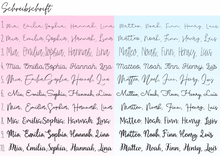 Schreibschrift
Mia, Emilia, Sophia, Hannah, Lina
Matteo, Noah, Finn, Henry, Luis
Mia, Emilia, Sophia, Hannah, Lina
Matteo, Noah, Finn, Henry, Luis
Mia, Emilia, Sophia, Hannah, Lina
Matteo, Noah, Finn, Henry, Luis
Mia, Emilia, Sophia, Hannah, Lina
Matteo, Noah, Finn, Henry, Luis
Mia, Emilia, Sophia, Hannah, Lina
Matteo, Noah, Finn, Henry, Luis
Mia, Emilia, Sophia, Hannah, Lina
Matteo, Noah, Finn, Henry, Luis
Mia, Emilia, Sophia, Hannah, Lina
Matteo, Noah, Finn, Henry, Luis
Mia, Emilia, Sophia, Hannah, Lina
Matteo, Noah, Finn, Henry, Luis
Mia, Emilia, Sophia, Hannah, Lina
Matteo, Noah, Finn, Henry, Luis
Mia, Emilia, Sophia, Hannah, Lina
Matteo, Noah, Finn, Henry, Luis